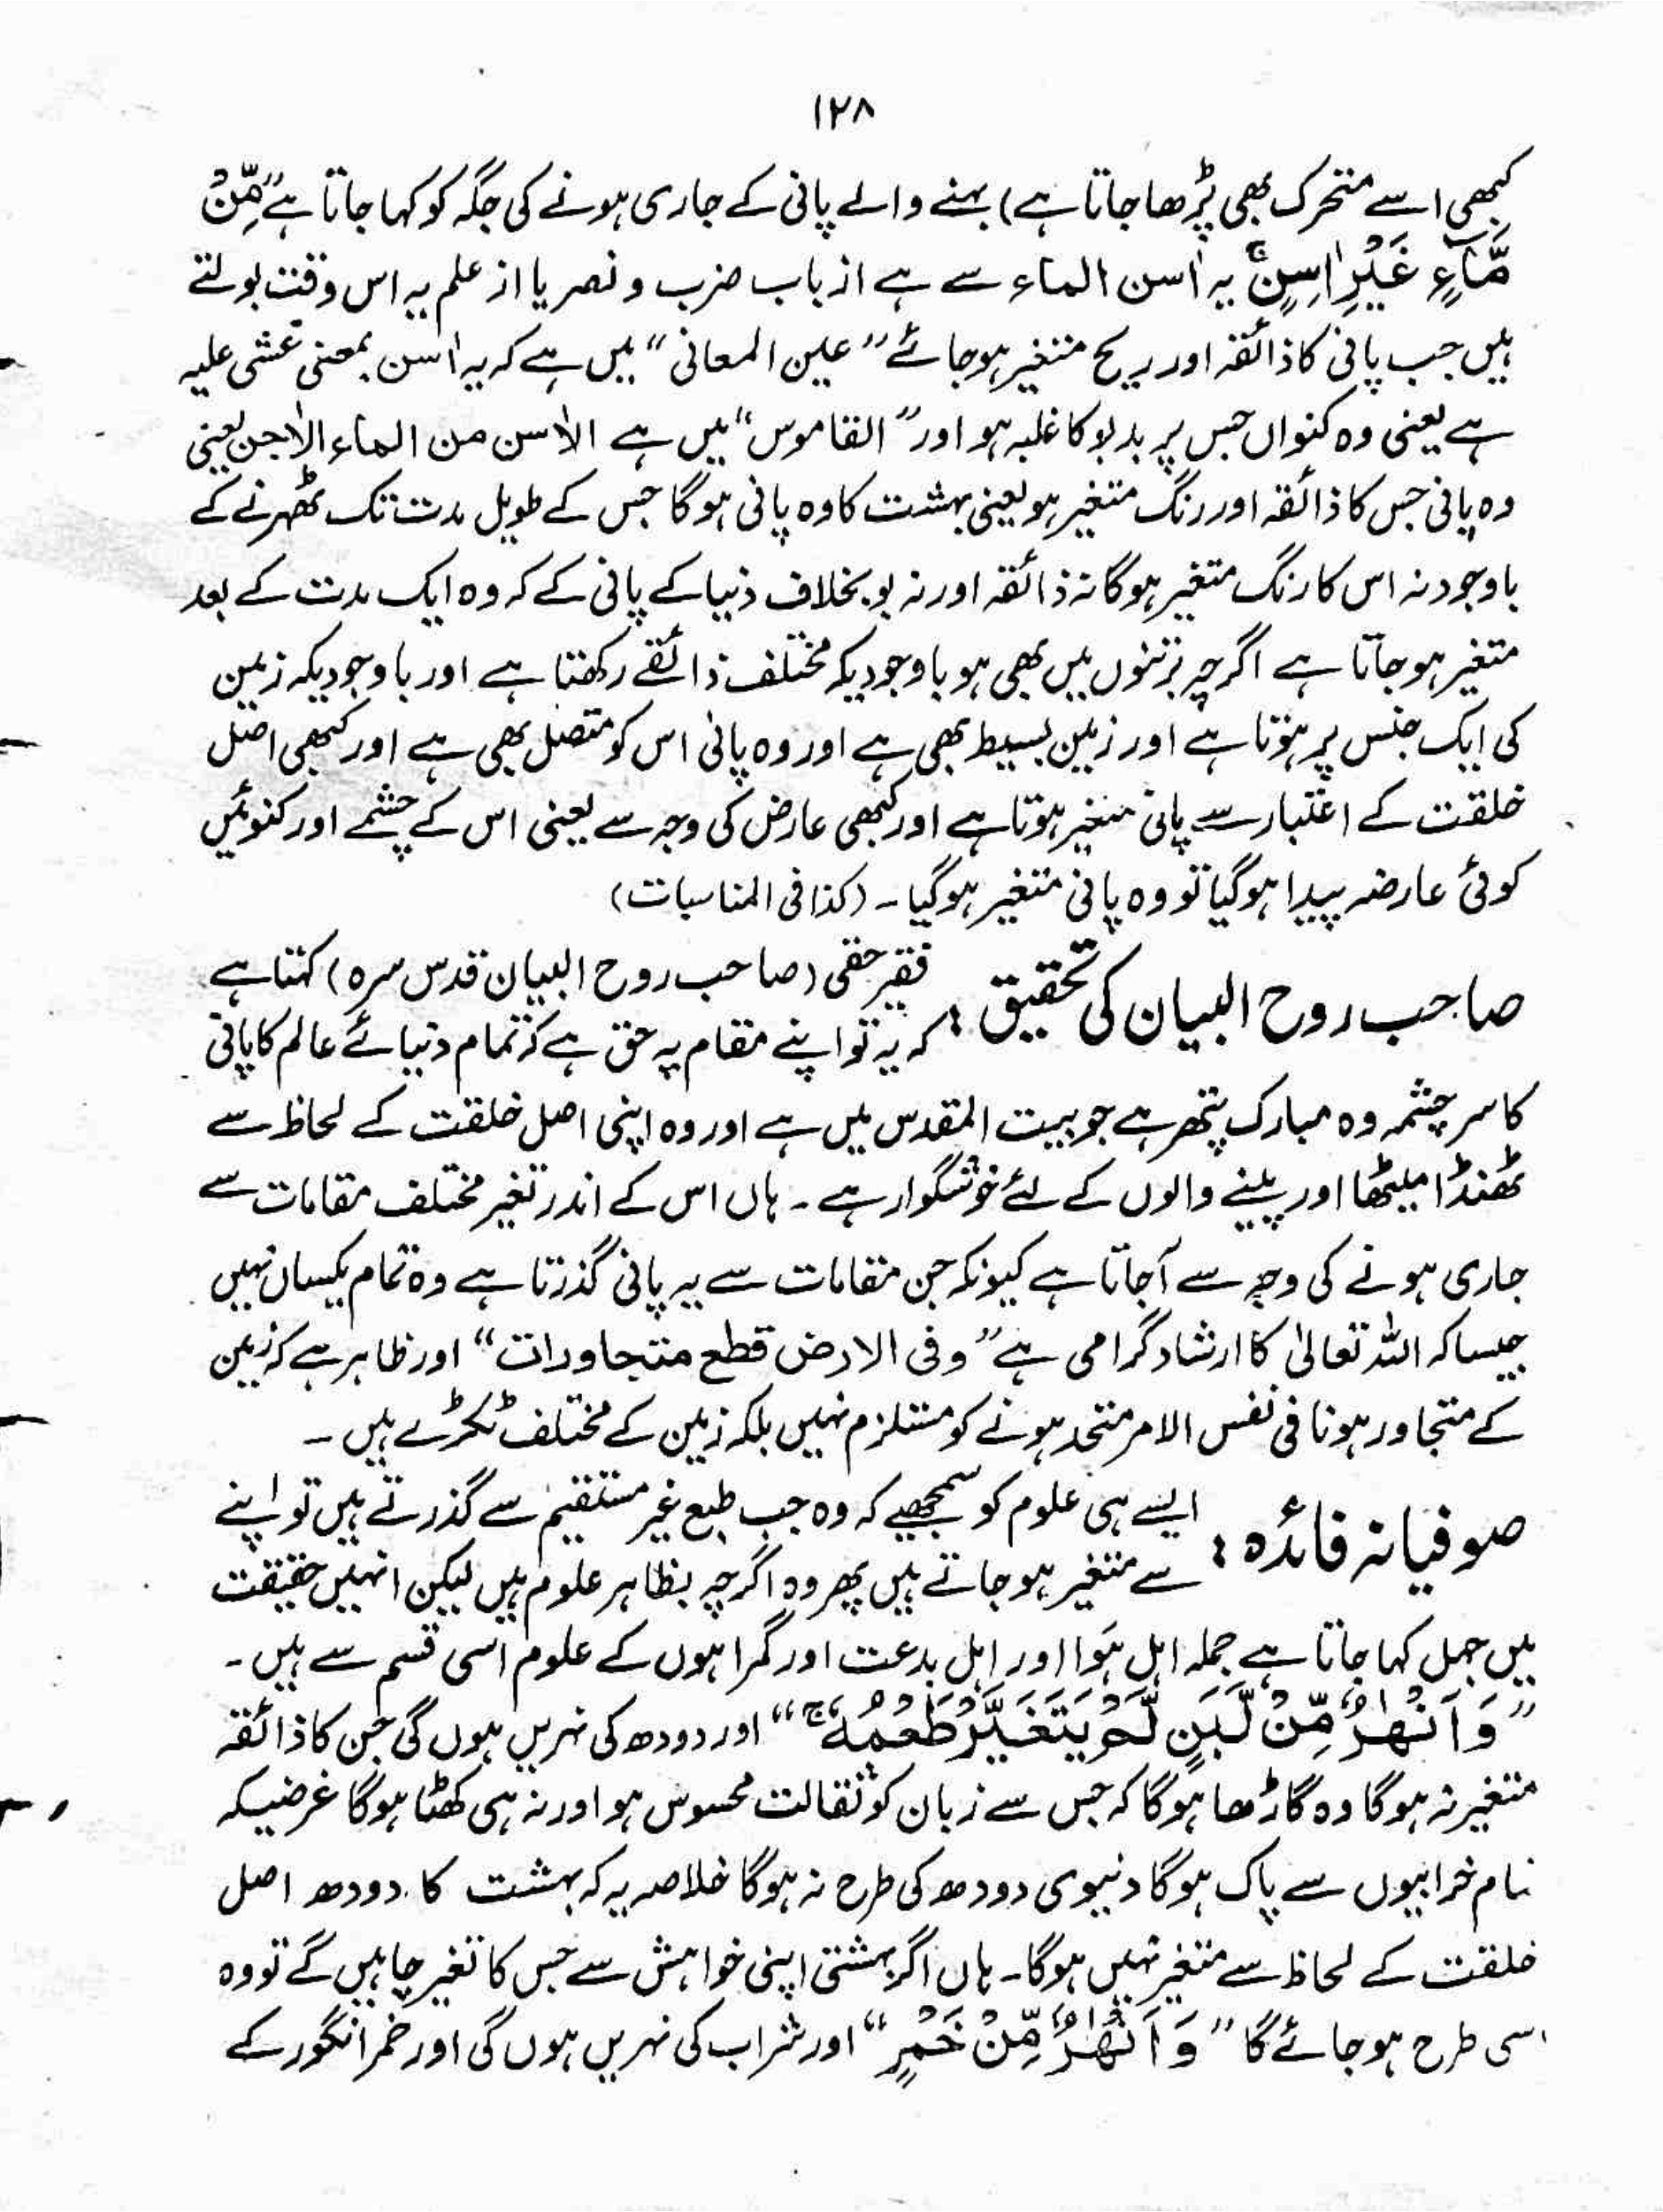 ۱۲۸
کبھی اسے متحرک بھی پڑھا جاتا ہے) بہنے والے پانی کے جاری ہونے کی جگہ کو کہا جاتا ہے ”مِّنْ
مَّآءٍ غَیْرِ اٰسِنٍۚ یہ اٰسن الماء سے ہے از باب ضرب و نصر یا از علم یہ اس وقت بولتے
ہیں جب پانی کا ذائقہ اور ریح متغیر ہو جائے ”عین المعانی“ میں ہے کہ یہ اٰسن بمعنی غشی علیہ
ہے یعنی وہ کنواں جس پر بدبو کا غلبہ ہو اور ”القاموس“ میں ہے الاٰسن من الماء الاٰجن یعنی
وہ پانی جس کا ذائقہ اور رنگ متغیر ہو یعنی بہشت کا وہ پانی ہوگا جس کے طویل مدت تک ٹھہرنے کے
باوجود نہ اس کا رنگ متغیر ہوگا نہ ذائقہ اور نہ بو بخلاف دنیا کے پانی کے کہ وہ ایک مدت کے بعد
متغیر ہو جاتا ہے اگرچہ برتنوں میں بھی ہو باوجودیکہ مختلف ذائقے رکھتا ہے اور باوجودیکہ زمین
کی ایک جنس پر ہوتا ہے اور زمین بسیط بھی ہے اور وہ پانی اس کو متصل بھی ہے اور کبھی اصل
خلقت کے اعتبار سے پانی متغیر ہوتا ہے اور کبھی عارض کی وجہ سے یعنی اس کے چشمے اور کنوئیں
کوئی عارضہ پیدا ہو گیا تو وہ پانی متغیر ہو گیا۔ (کذا فی المناسبات)
صاحب روح البیان کی تحقیق : فقیر حقی (صاحب روح البیان قدس سرہ) کہتا ہے
کہ یہ تو اپنے مقام پہ حق ہے کہ تمام دنیائے عالم کا پانی
کا سرچشمہ وہ مبارک پتھر ہے جو بیت المقدس میں ہے اور وہ اپنی اصل خلقت کے لحاظ سے
ٹھنڈا میٹھا اور پینے والوں کے لئے خوشگوار ہے۔ ہاں اس کے اندر تغیر مختلف مقامات سے
جاری ہونے کی وجہ سے آجاتا ہے کیونکہ جن مقامات سے یہ پانی گذرتا ہے وہ تمام یکساں نہیں
جیسا کہ اللہ تعالیٰ کا ارشاد گرامی ہے ”وفی الارض قطع متجاورات“ اور ظاہر ہے کہ زمین
کے متجاور ہونا فی نفس الامر متحد ہونے کو مستلزم نہیں بلکہ زمین کے مختلف ٹکڑے ہیں۔
صوفیانہ فائدہ : ایسے ہی علوم کو سمجھیے کہ وہ جب طبع غیر مستقیم سے گذرتے ہیں تو اپنے
سے متغیر ہو جاتے ہیں پھر وہ اگرچہ بظاہر علوم ہیں لیکن انہیں حقیقت
میں جہل کہا جاتا ہے جملہ اہل ہَوا اور اہل بدعت اور گمراہوں کے علوم اسی قسم سے ہیں۔
”وَ اَنْهٰرٌ مِّنْ لَّبَنٍ لَّمْ یَتَغَیَّرْ طَعْمُهٗۚ“ اور دودھ کی نہریں ہوں گی جن کا ذائقہ
متغیر نہ ہوگا وہ گاڑھا ہوگا کہ جس سے زبان کو ثقالت محسوس ہو اور نہ ہی کھٹا ہوگا غرضیکہ
تمام خرابیوں سے پاک ہوگا دنیوی دودھ کی طرح نہ ہوگا خلاصہ یہ کہ بہشت کا دودھ اصل
خلقت کے لحاظ سے متغیر نہیں ہوگا۔ ہاں اگر بہشتی اپنی خواہش سے جس کا تغیر چاہیں گے تو وہ
اسی طرح ہو جائے گا ”وَ اَنْهٰرٌ مِّنْ خَمْرٍ“ اور شراب کی نہریں ہوں گی اور خمر انگور کے